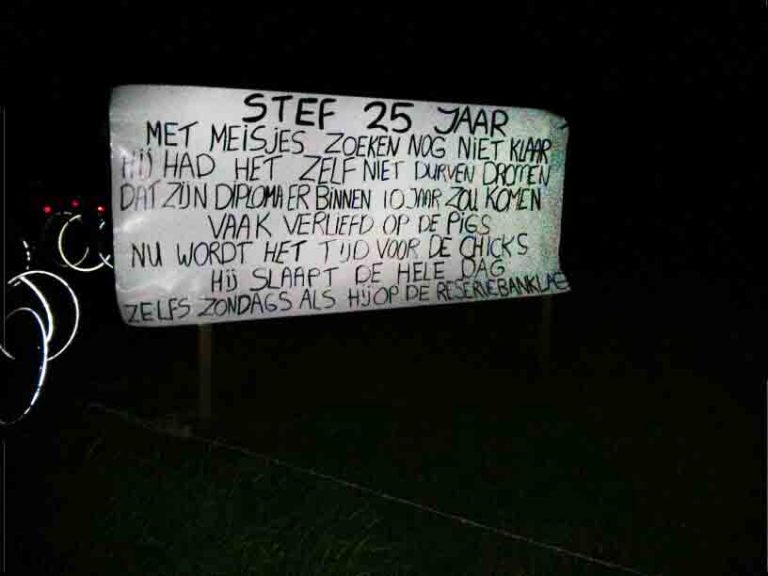 STEF 25 JAAR
MET MEISJES ZOEKEN NOG NIET KLAAR
HIJ HAD HET ZELF NIET DURVEN DROMEN
DAT ZIJN DIPLOMA ER BINNEN 10 JAAR ZOU KOMEN
VAAK VERLIEFD OP DE PIGS
NU WORDT HET TIJD VOOR DE CHICKS
HIJ SLAAPT DE HELE DAG
ZELFS ZONDAGS ALS HIJ OP DE RESERVEBANK LAG